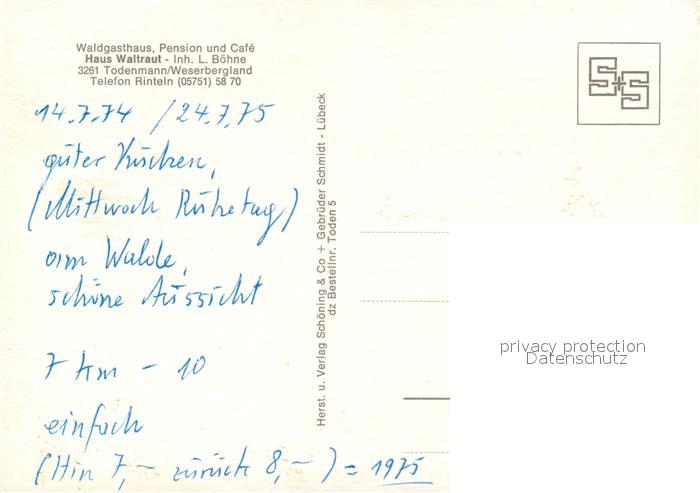 Waldgasthaus, Pension und Café
Haus Waltraut - Inh. L. Böhne
3261 Todenmann/Weserbergland
Telefon Rinteln (05751) 58 70
14.7.74 / 24.7.75
guter Kuchen,
(Mittwoch Ruhetag)
am Walde,
schöne Aussicht
7 km - 10
einfach
(Hin 7,- zurück 8,-) = 1975
Herst. u. Verlag Schöning & Co + Gebrüder Schmidt - Lübeck
dz Bestellnr. Toden 5
S+S
privacy protection
Datenschutz